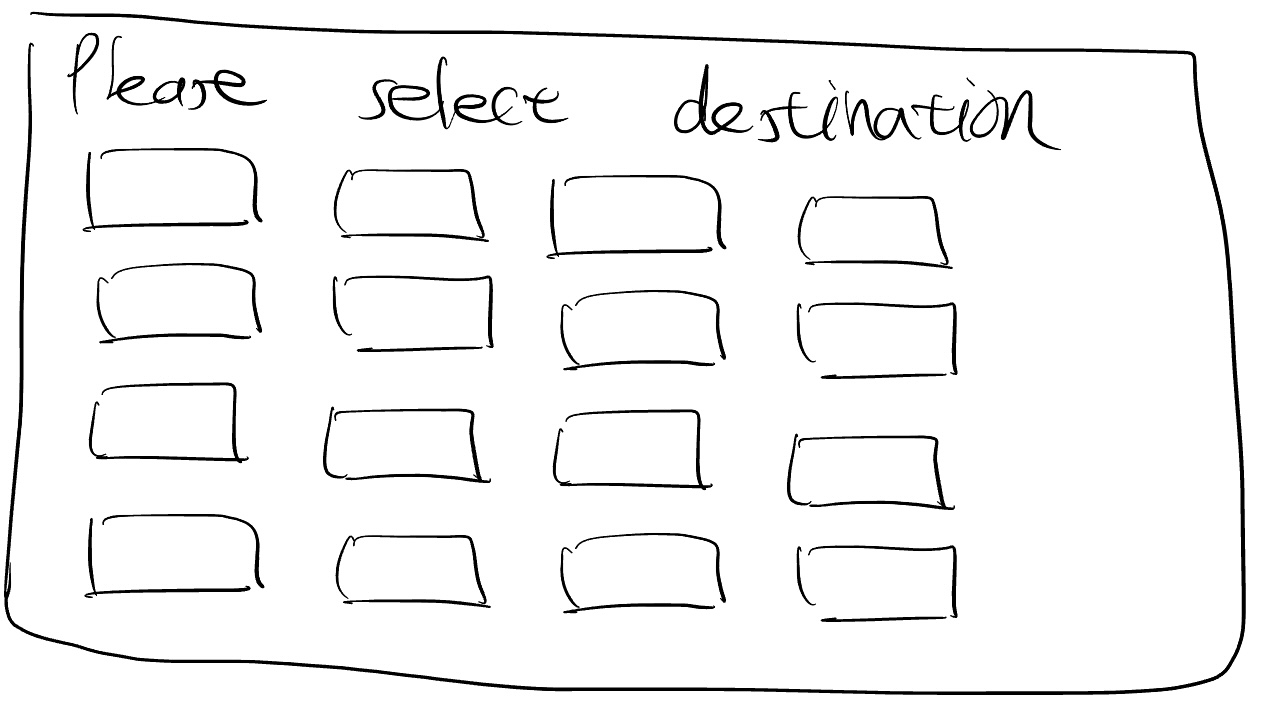 Please select destination